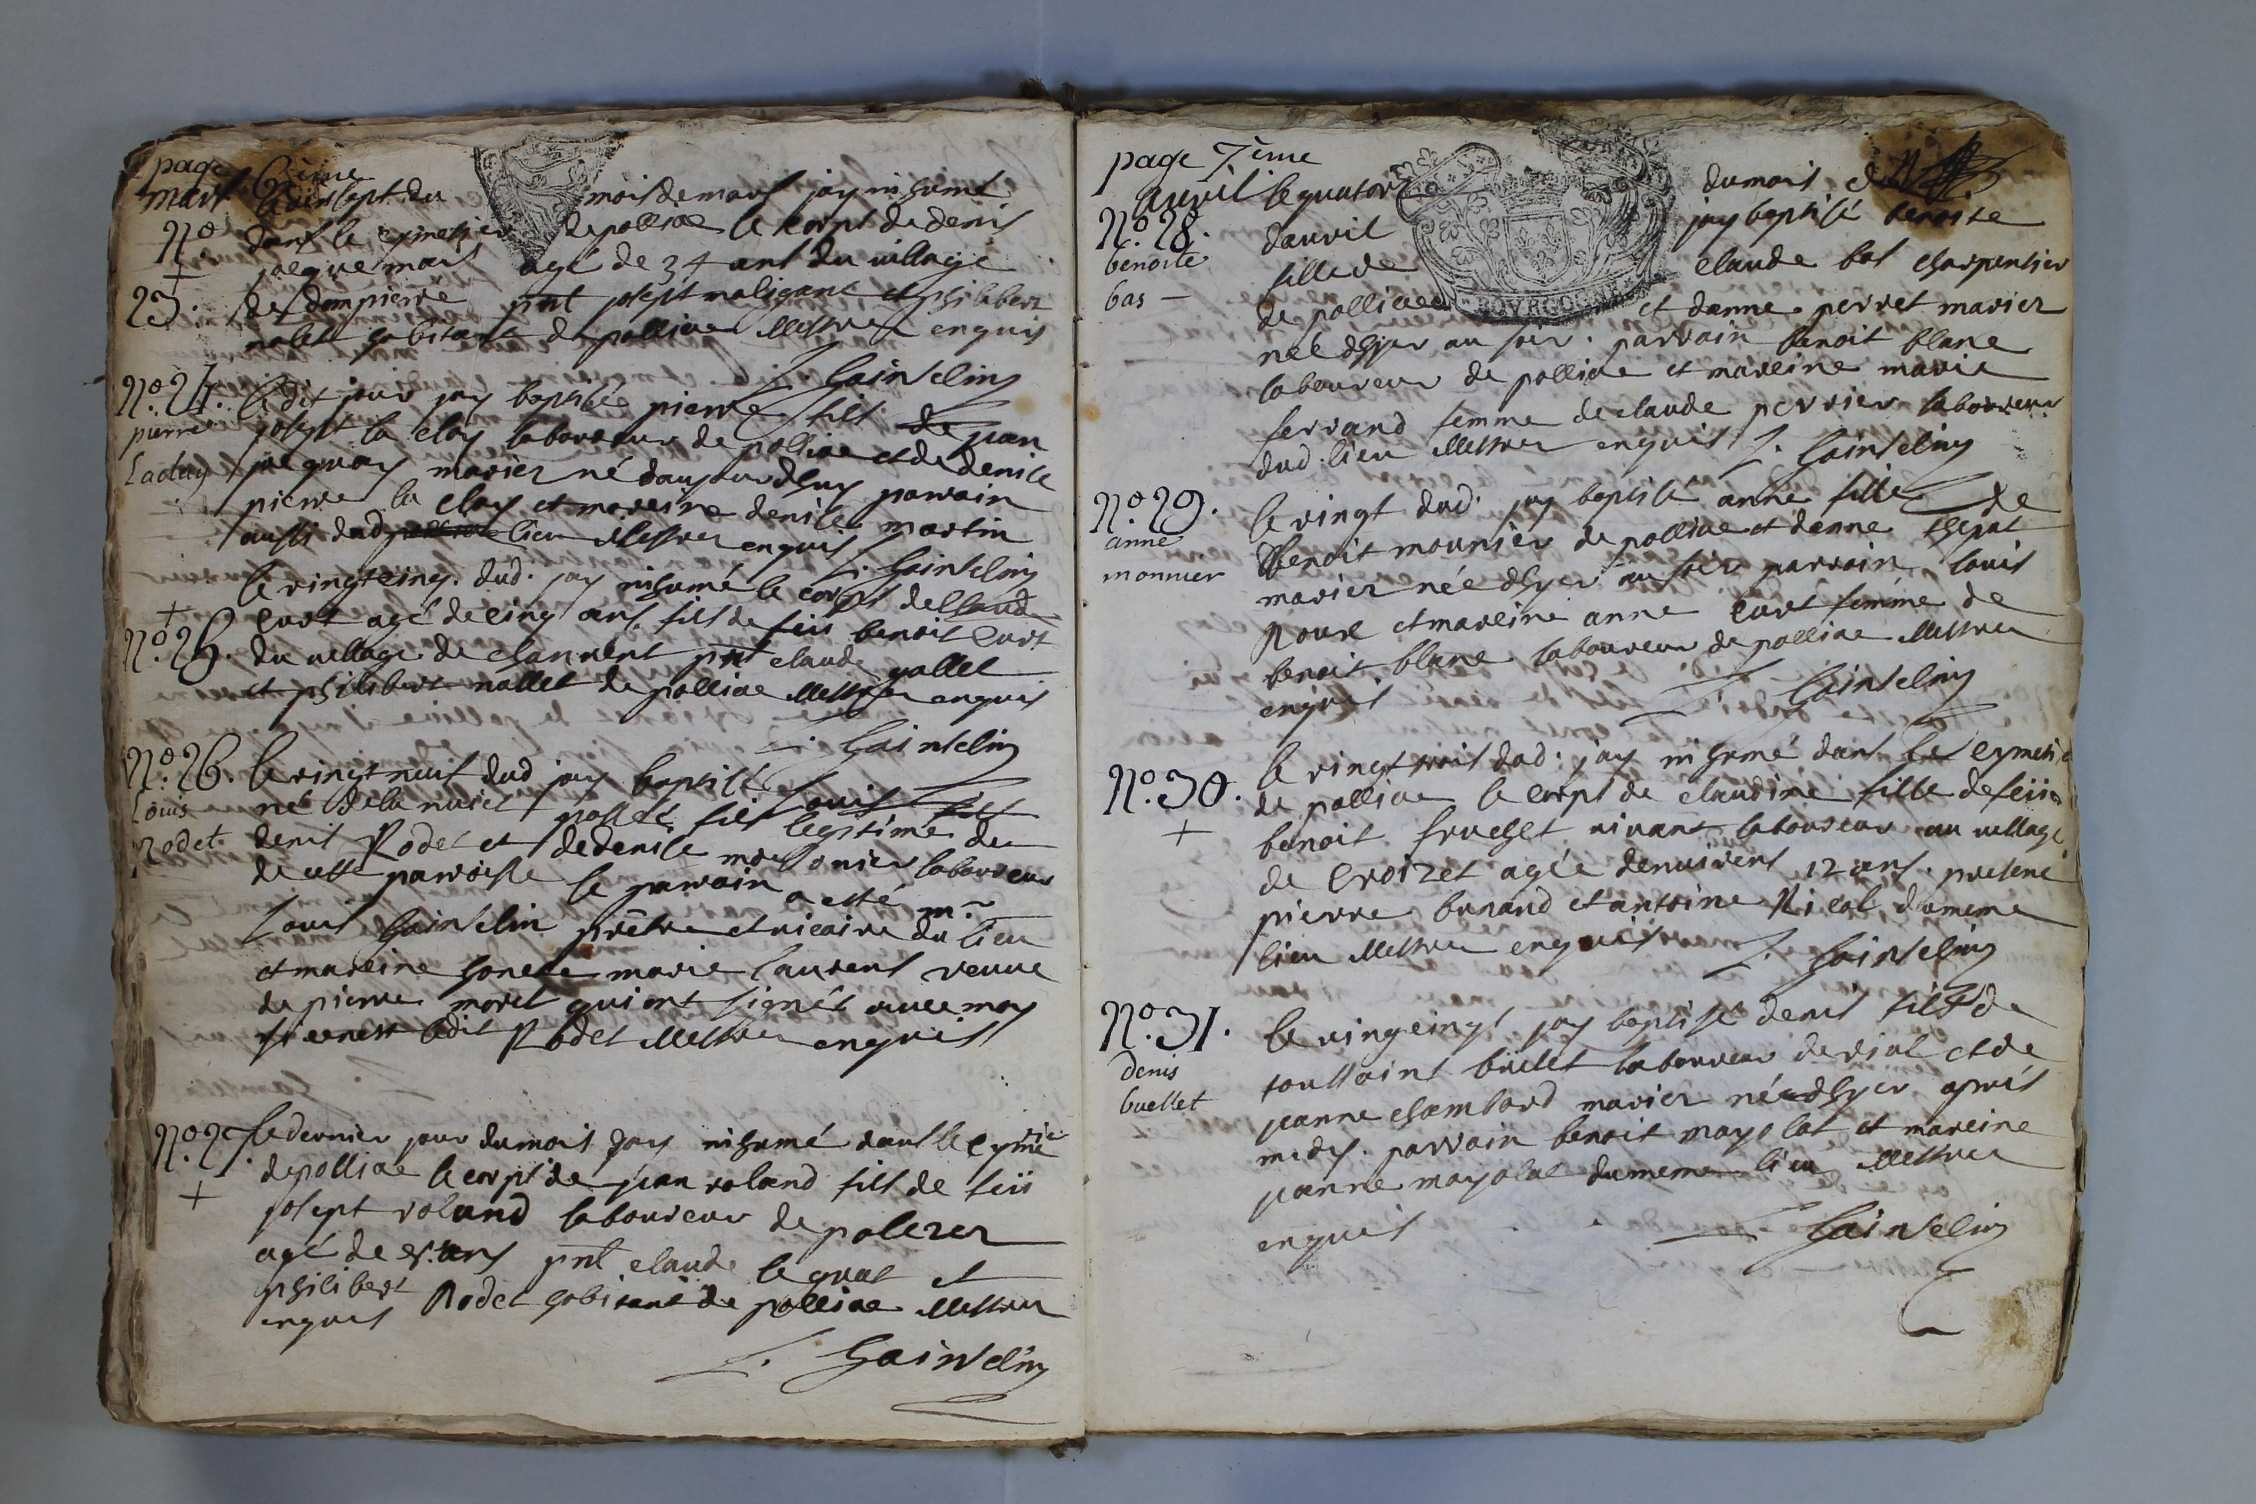 page 6ème
mars. le vint sept du mois de mars jay inhumé
No 23. dans le cymetier de polliae le corps de denis
+
jaequemais agé de 34 ans du village
de dompierre pnt josept maligant et philibert
nallet habitant de polliae illettrez enquis
L. Gainselin
No. 24. ledit jour jay baptisée pierre fils de jean
pierre
Laclay
josept la clay laboureur de polliae et de denise
jaequay mariez né daujourdhuy parrain
pierre la clay et mareine denise martin
aussi dud lieu illettrez enquis
L. Gainselin
+
No. 25.
le vingt cinq. dud. jay inhumé le corps de Claude
curt agé de cinq ans, fils de feii benoit curt
du village de pnt claude gallet
et philibert nallet de polliae illettrez enquis
L. Gainselin
No. 26.
Louis
Rodet.
le vingt neuf dud jay baptisé Louis fils
né de la nuict passée, fils legitime de
denis Rodet et de denise monier laboureur
de cette parroisse le parrain a esté mr.
Louis Gainselin prêtre et vicaire du lieu
et mareine honete marie laurens veuve
de pierre morel qui ont signés avec moy
ledit Rodet illettrez enquis
No. 27.
+
le dernier jour du mois jay inhumé dans le cyme
de polliae le corps de jean roland fils de feii
josept roland laboureur de polezer
agé de ans pnt claude legrat et
philibert Rodet habitant de polliae illettrez
enquis
L. Gainselin
page 7ème
avril le quatorz du mois
No. 28.
benoite
bas
davril jay baptisé benoite
fille de claude bas charpentier
de polliae et danne perret mariez
née dhyer au soir. parrain benoit blanc
laboureur de polliae et mareine marie
ferrand femme de claude perrier laboureur
dud. lieu illettrez enquis L. Gainselin
No. 29.
anne
monnier
le vingt dud. jay baptisé anne fille de
benoit mounier de polliae et danne
mariez née dhyer au soir parrain louis
Roux et mareine anne curt femme de
benoit blanc laboureur de polliae illettrez
enquis L. Gainselin
No. 30.
+
le vingt trois dud: jay inhumé dans le cymeti
de polliae le corps de claudine fille de feii
benoit fruchet vivant laboureur au village
de Croizet agée denvirent 12 ans. presene
pierre burand et antoine Nicol du meme
lieu illettrez enquis L. Gainselin
No. 31.
denis
buellet
le vingeinqt jay baptisé denis fils de
toussaint büllet laboureur de vial et de
jeanne chambard mariez né dhyer aprés
midy. parrain benoit mayolat et mareine
jeanne mayolat du meme lieu illettrez
enquis L. Gainselin
BOVRGOGNE